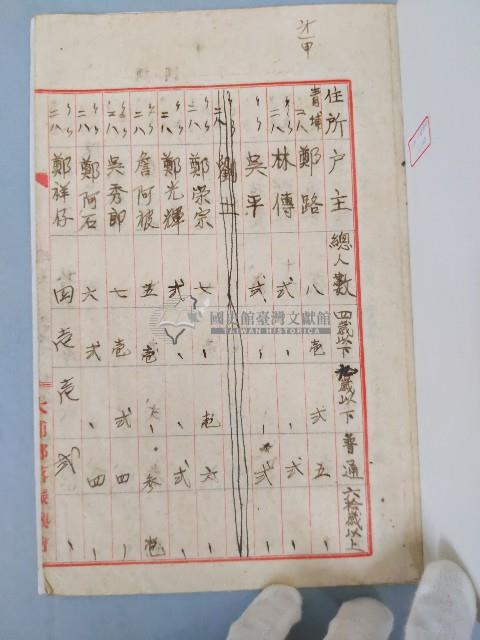 廾一甲
住所 戶主 總人數 四歲以下 拾歲以下 普通 六拾歲以上
青埔 二八 鄭路 八 壱 弍 五 、
〃 〃 二八 林傳 弍 、 、 弍 、
〃 〃 吳平 弍 、 、 弍 、
〃 〃 二八 劉
〃 〃 二八 鄭榮宗 七 、 壱 六 、
〃 〃 二八 鄭光輝 弍 、 、 弍 、
〃 〃 二八 詹阿被 五 壱 、 參 壱
〃 〃 二八 吳秀郎 七 壱 弍 四 、
〃 〃 二八 鄭阿石 六 弍 、 四 、
〃 〃 二八 鄭祥仔 四 壱 壱 弍 、
國史館臺灣文獻館
TAIWAN HISTORICA